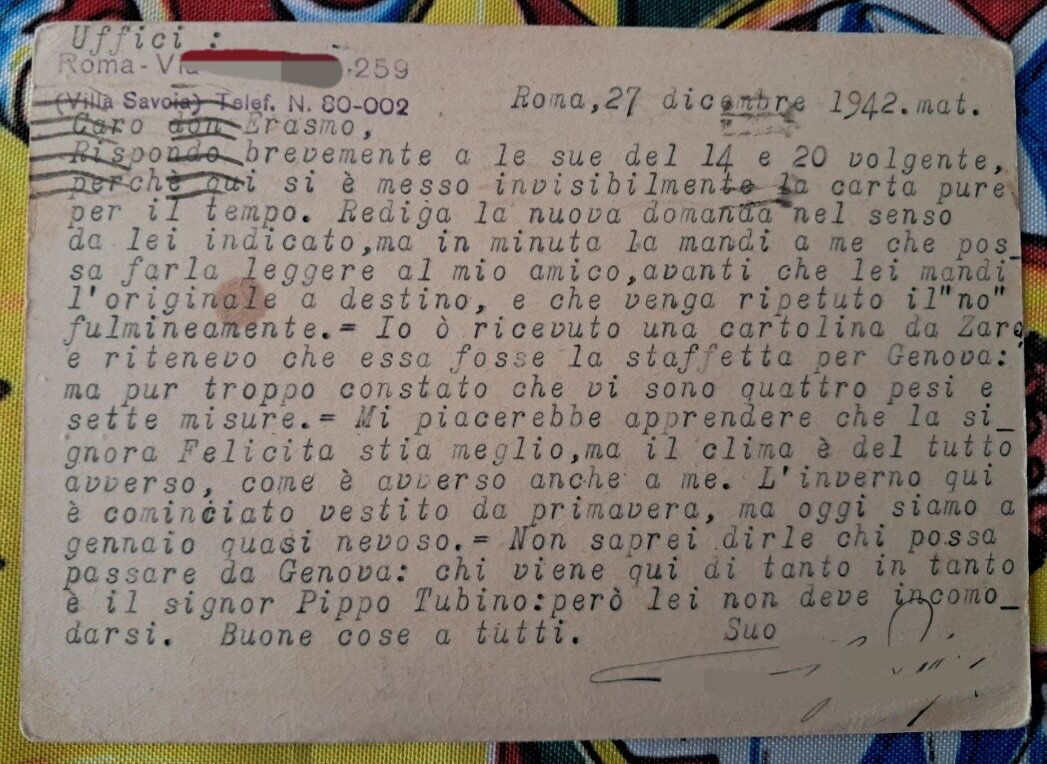 Uffici :
Roma - Via 259
(Villa Savoia) Telef. N. 80-002
Roma,27 dicembre 1942.mat.
Caro don Erasmo,
Rispondo brevemente a le sue del 14 e 20 volgente,
perchè qui si è messo invisibilmente la carta pure
per il tempo. Rediga la nuova domanda nel senso
da lei indicato,ma in minuta la mandi a me che pos_
sa farla leggere al mio amico,avanti che lei mandi
l'originale a destino, e che venga ripetuto il"no"
fulmineamente.= Io ò ricevuto una cartolina da Zara
e ritenevo che essa fosse la staffetta per Genova:
ma pur troppo constato che vi sono quattro pesi e
sette misure.= Mi piacerebbe apprendere che la si_
gnora Felicita stia meglio,ma il clima è del tutto
avverso, come è avverso anche a me. L'inverno qui
è cominciato vestito da primavera, ma oggi siamo a
gennaio quasi nevoso.= Non saprei dirle chi possa
passare da Genova: chi viene qui di tanto in tanto
è il signor Pippo Tubino:però lei non deve incomo_
darsi. Buone cose a tutti. Suo